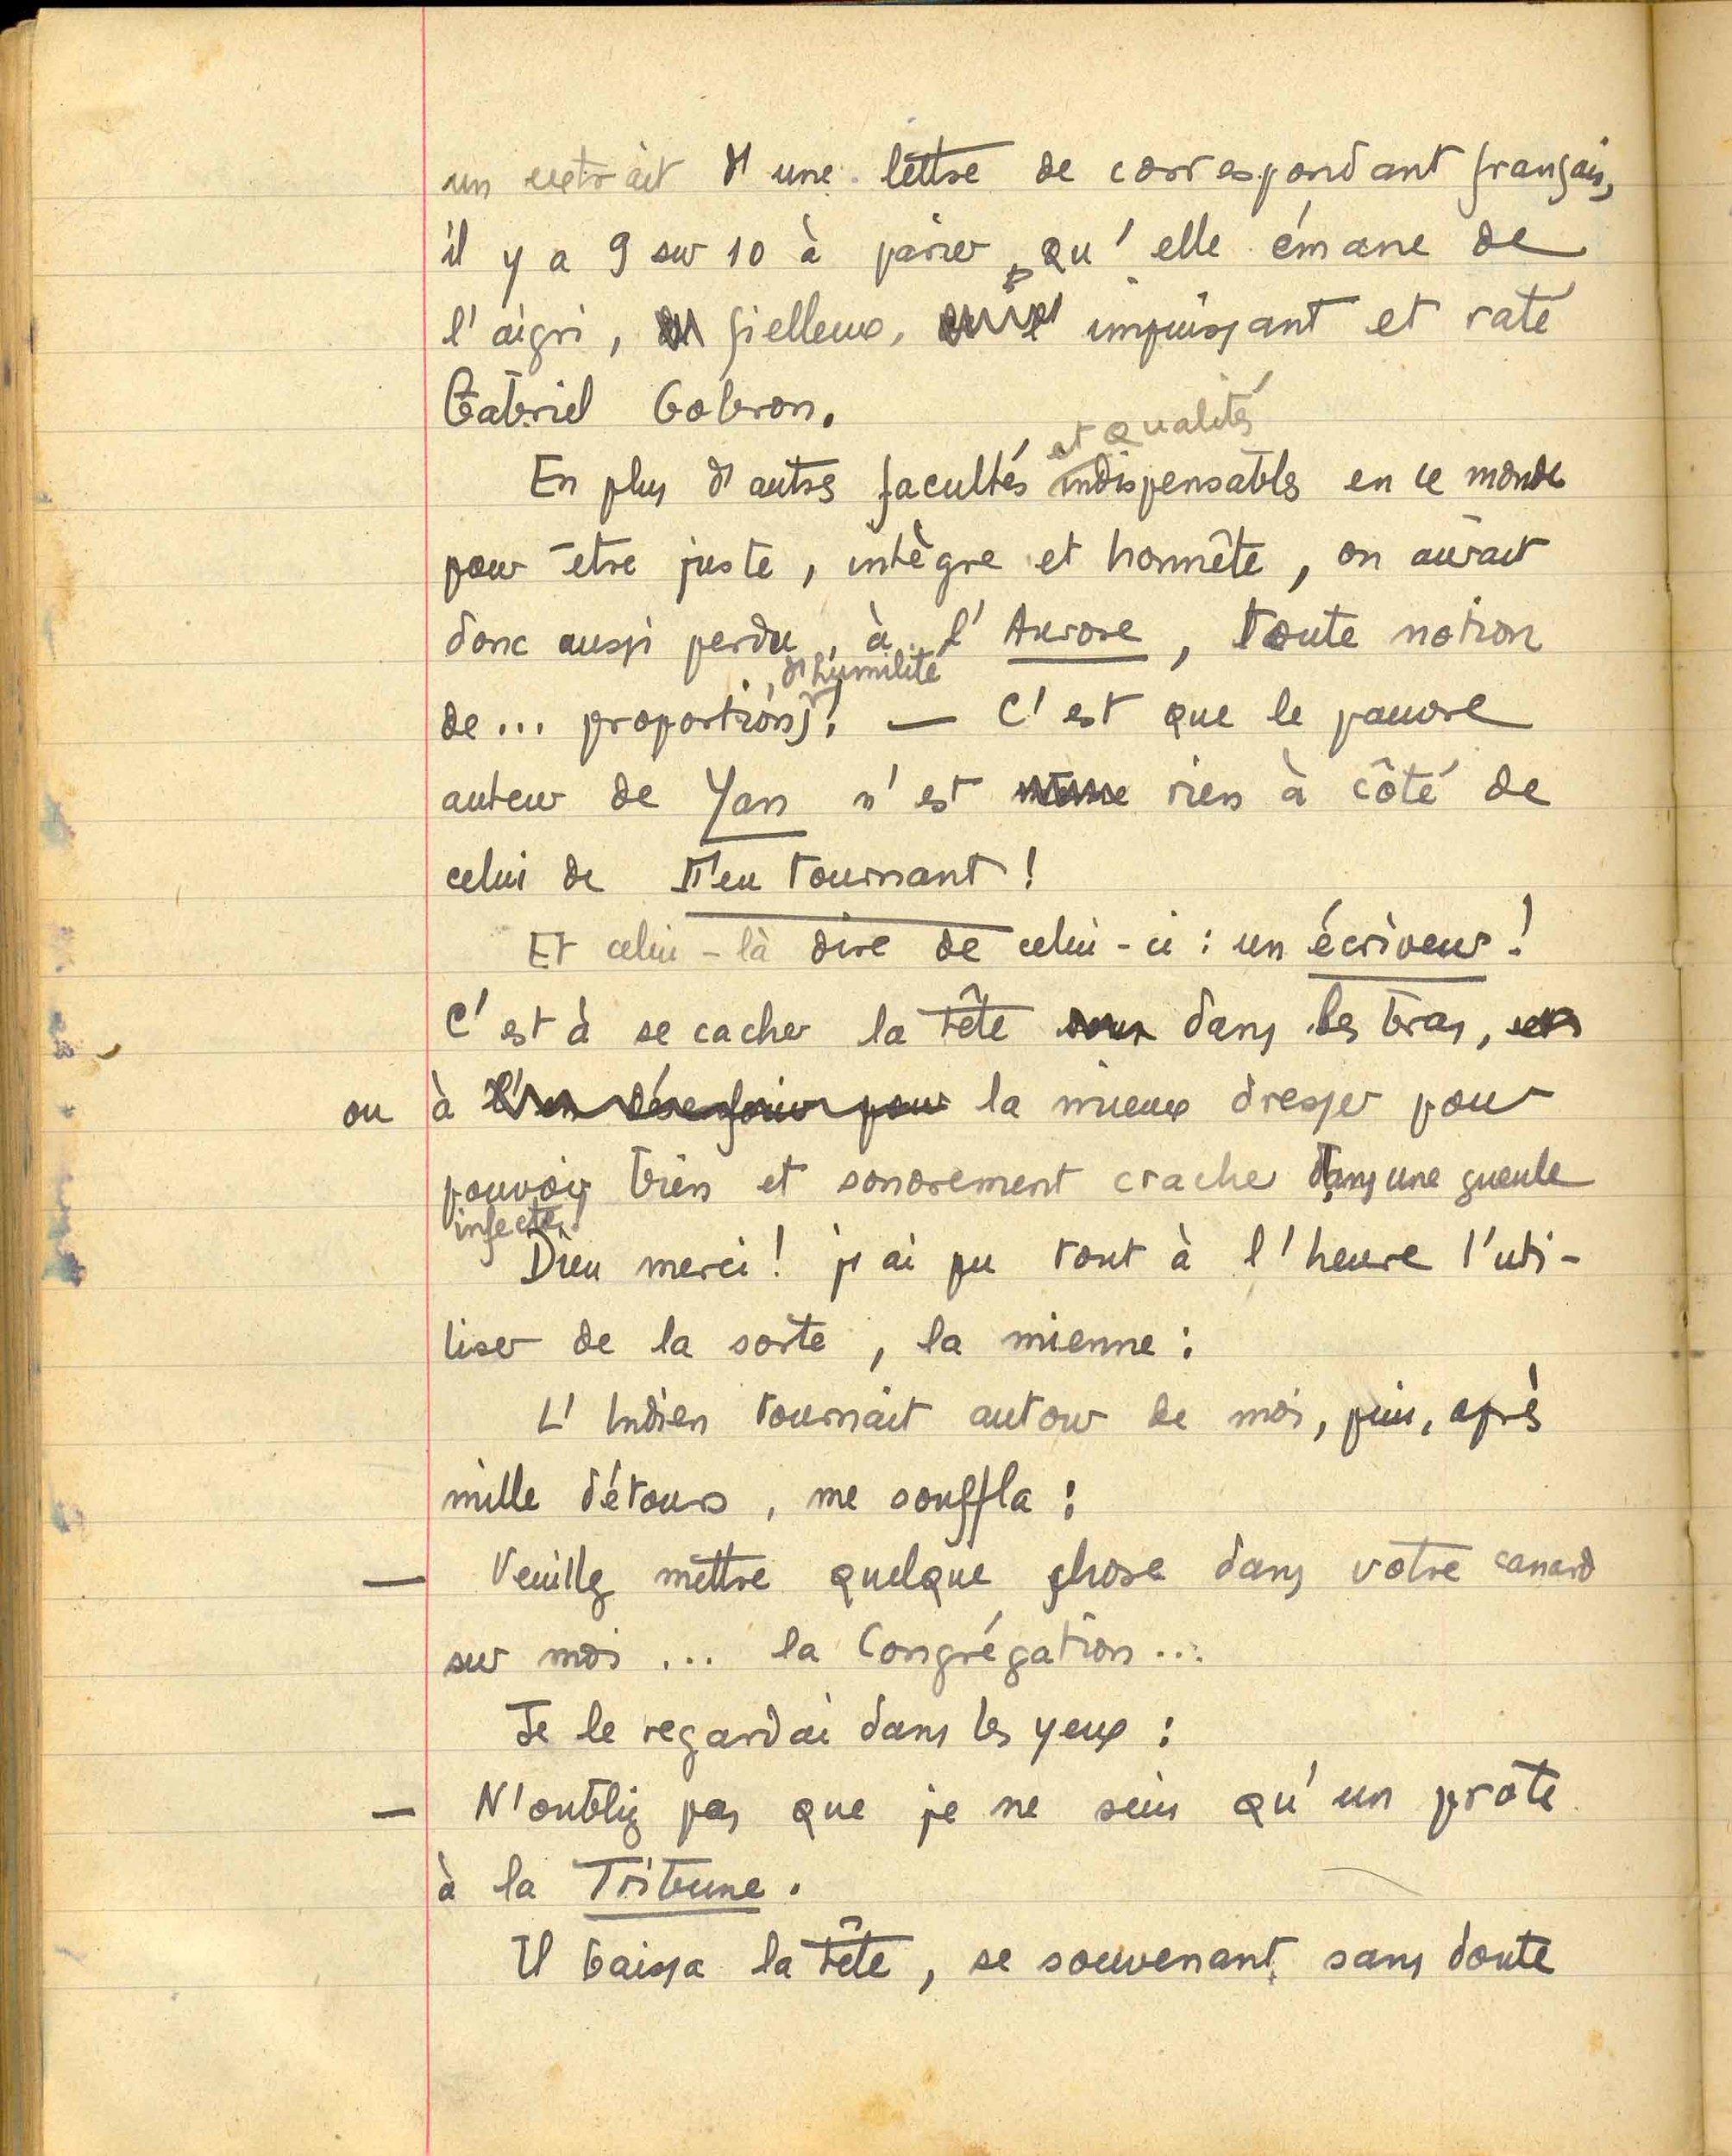 un extrait d'une lettre de correspondant français,
il y a 9 sur 10 à parier qu'elle émane de
l'aigri, fielleux, impuissant et raté
Gabriel Gobron.
et qualités
En plus d'autres facultés indispensables en ce monde
pour être juste, intègre et honnête, on aurait
donc aussi perdu, à l'Aurore, toute notion
, d'humilité
de... proportions! — C'est que le pauvre
auteur de Yan n'est rien à côté de
celui de Feu tournant!
Et celui-là dire de celui-ci : un écriveur!
C'est à se cacher la tête dans les bras,
ou à la mieux dresser pour
pouvoir bien et sonorement cracher dans une gueule
infecte.
Dieu merci! j'ai pu tout à l'heure l'uti-
liser de la sorte, la mienne :
L'Indien tournait autour de moi, puis, après
mille détours, me souffla :
— Veuillez mettre quelque chose dans votre canard
sur moi... la Congrégation...
Je le regardai dans les yeux :
— N'oubliez pas que je ne suis qu'un prote
à la Tribune.
Il baissa la tête, se souvenant sans doute